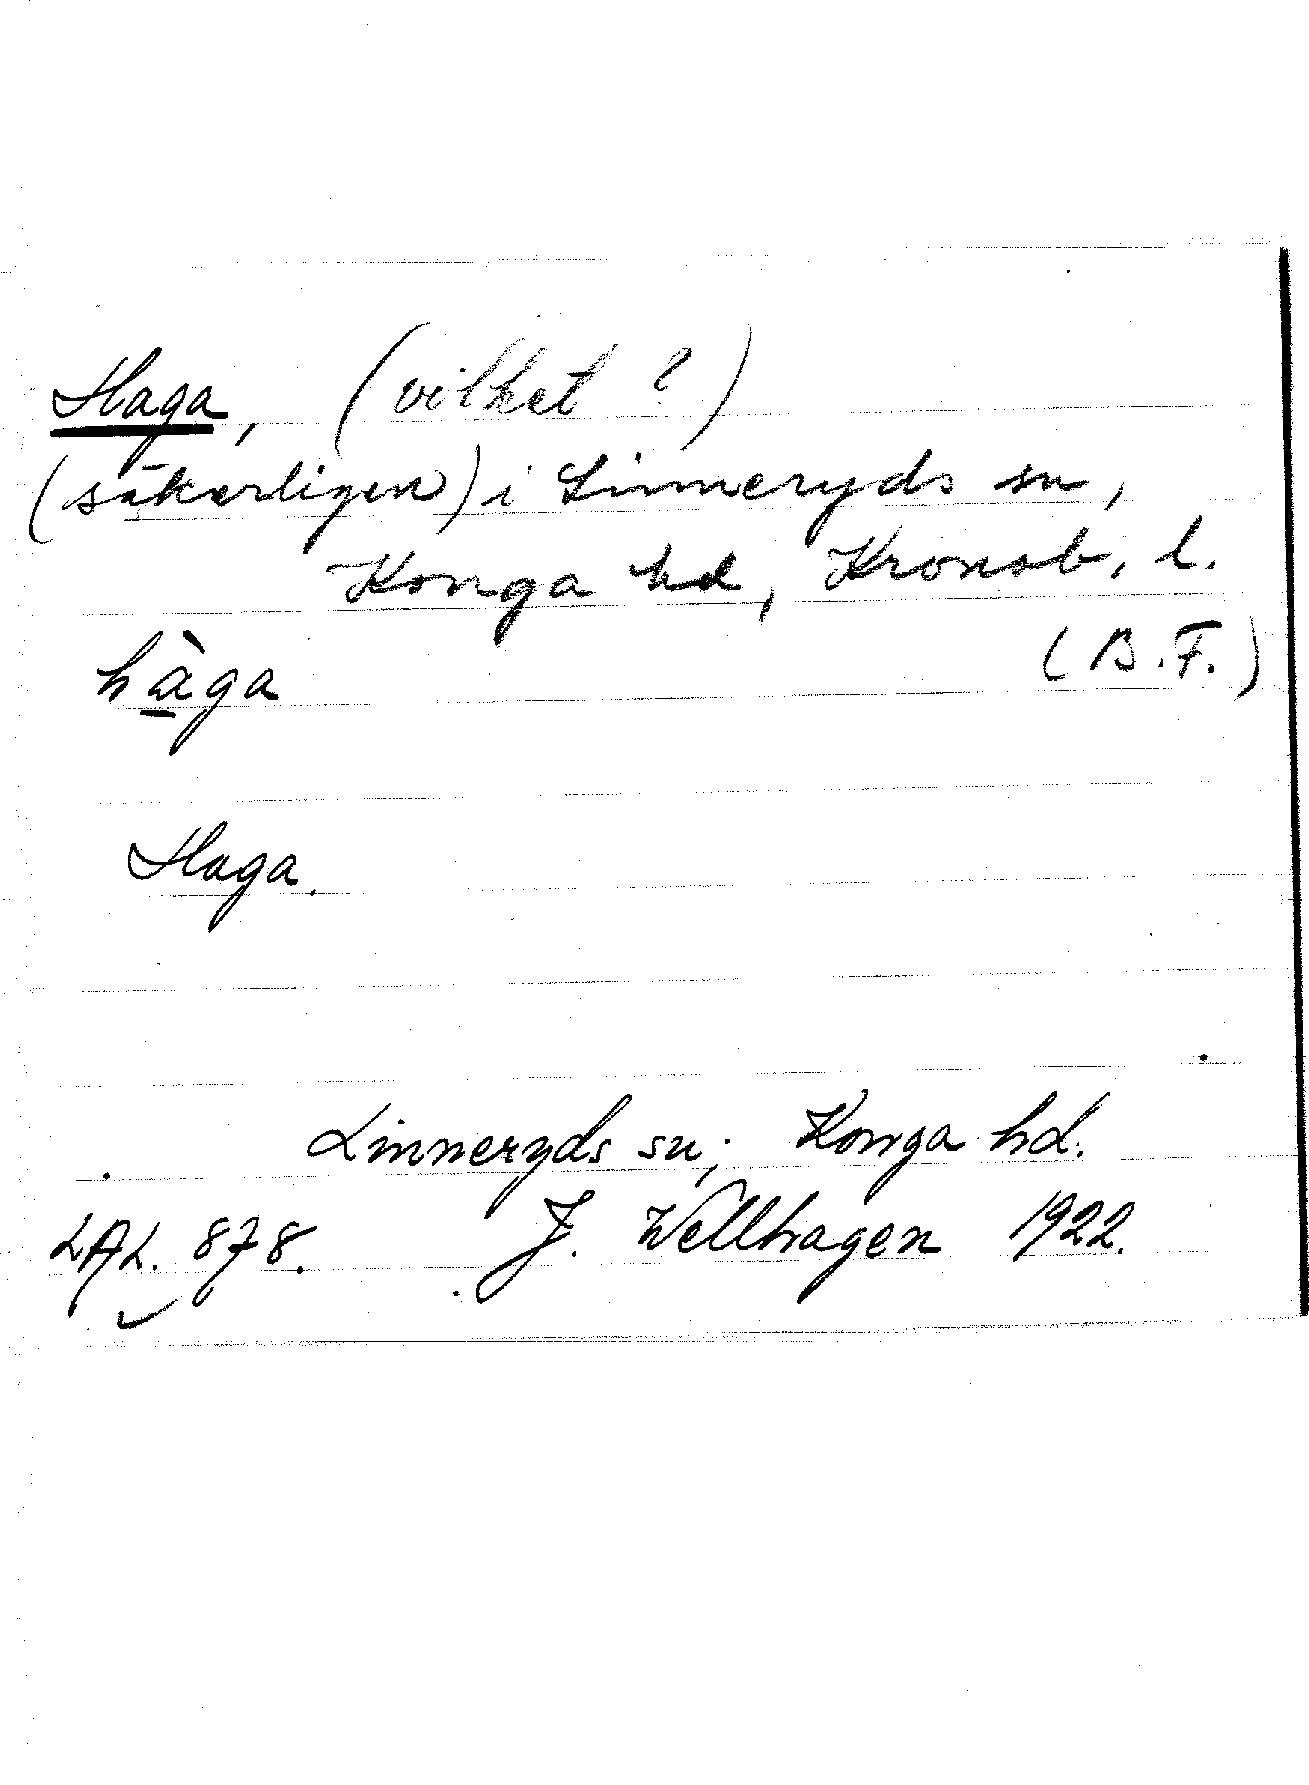 Haga, (vilket ?)
(säkerligen) i Linneryds sn,
Konga hd, Kronob. l.
(B.F.)
hàga
Haga.
Linneryds sn; Konga hd.
LAL. 878. J. Wellhagen 1922.